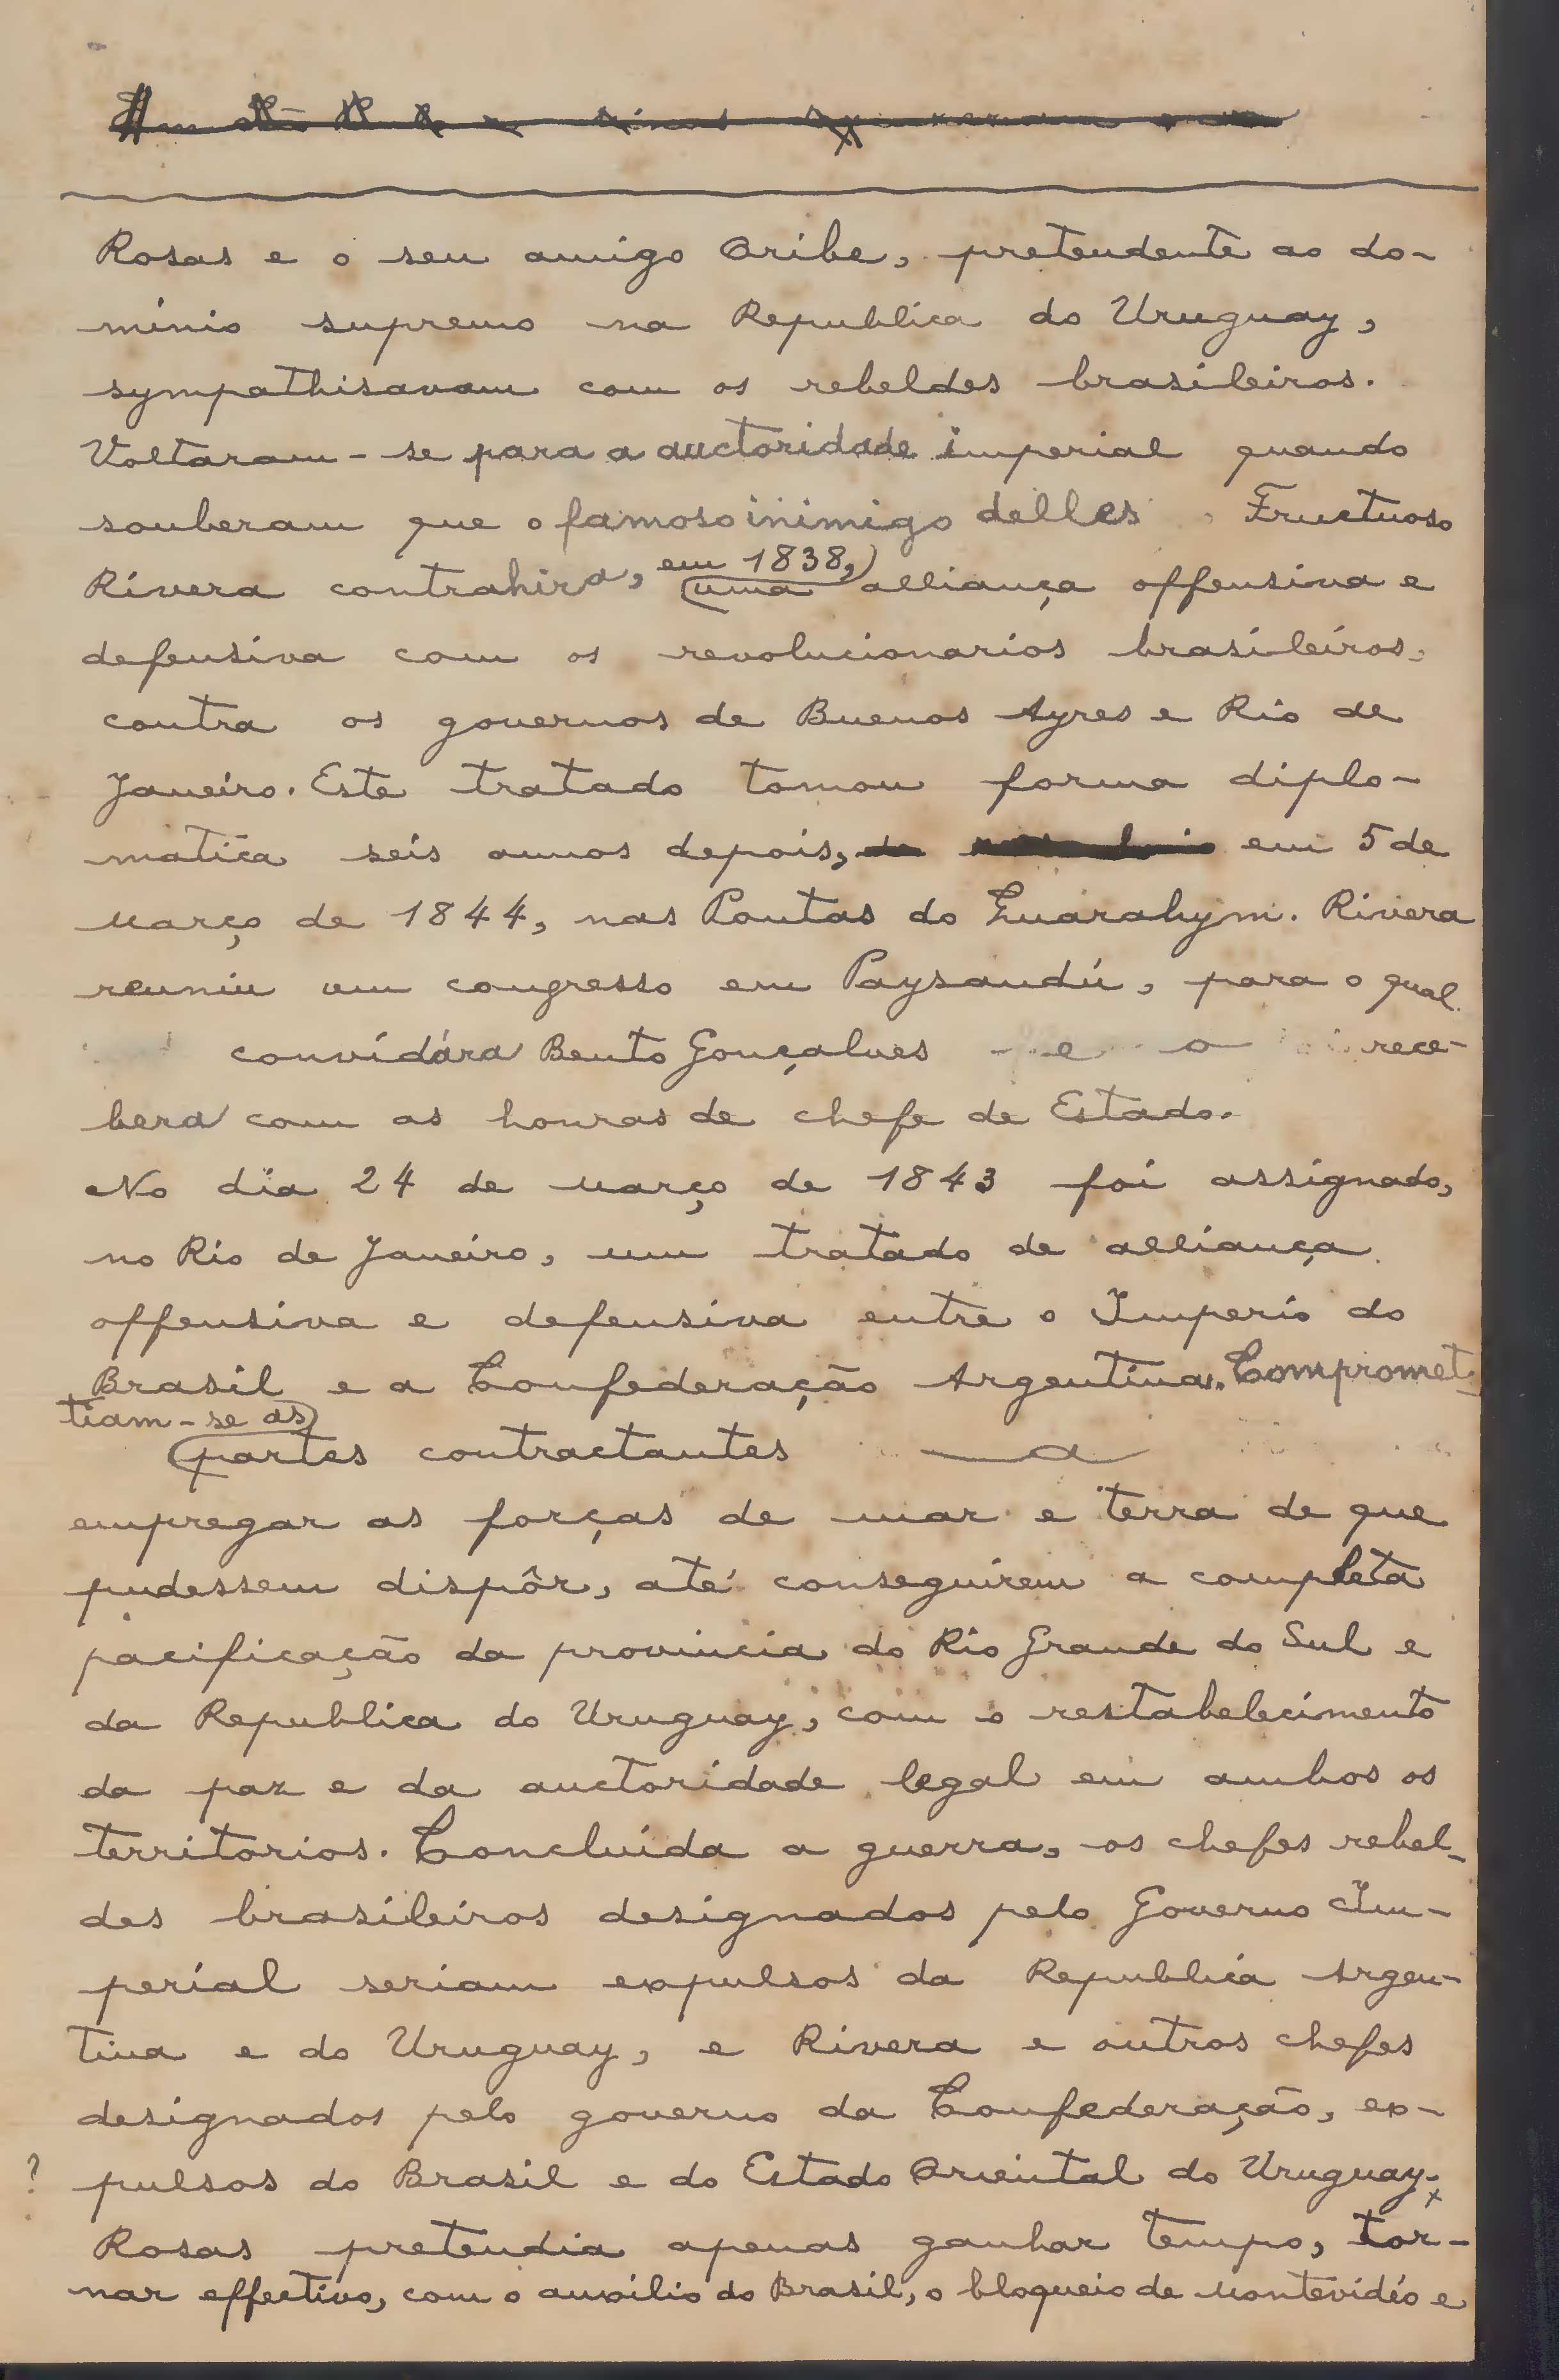 Rosas e o seu amigo Oribe, pretendente ao do-
minio supremo na Republica do Uruguay,
sympathisavam com os rebeldes brasileiros.
Voltaram-se para a auctoridade imperial quando
souberam que o famoso inimigo delles Fructuoso
Rivera contrahira, em 1838, uma alliança offensiva e
defensiva com os revolucionarios brasileiros,
contra os governos de Buenos Ayres e Rio de
Janeiro. Este tratado tomou forma diplo-
matica seis annos depois, em 5 de
março de 1844, nas Pontas do Guarahym. Rivera
reuniu um congresso em Paysandú, para o qual
convidára Bento Gonçalves e o rece-
bera com as honras de chefe de Estado.
No dia 24 de março de 1843 foi assignado,
no Rio de Janeiro, um tratado de alliança
offensiva e defensiva entre o Imperio do
Brasil e a Confederação Argentina. Compromet-
tiam-se as
partes contractantes a
empregar as forças de mar e terra de que
pudessem dispôr, até conseguirem a completa
pacificação da provincia do Rio Grande do Sul e
da Republica do Uruguay, com o restabelecimento
da paz e da auctoridade legal em ambos os
territorios. Concluida a guerra, os chefes rebel-
des brasileiros designados pelo Governo Im-
perial seriam expulsos da Republica Argen-
tina e do Uruguay, e Rivera e outros chefes
designados pelo governo da Confederação, ex-
? pulsos do Brasil e do Estado Oriental do Uruguay. x
Rosas pretendia apenas ganhar tempo, tor-
nar effectivo, com o auxilio do Brasil, o bloqueio de Montevidéo e